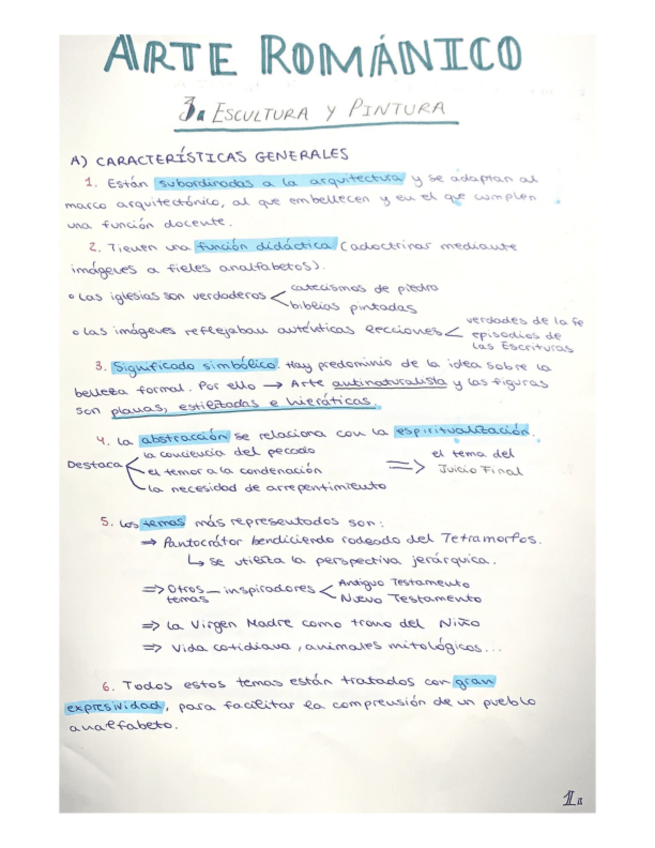 ARTE ROMÁNICO
3. ESCULTURA Y PINTURA
A) CARACTERÍSTICAS GENERALES
1. Están subordinadas a la arquitectura y se adaptan al
marco arquitectónico, al que embellecen y en el que cumplen
una función docente.
2. Tienen una función didáctica (adoctrinar mediante
imágenes a fieles analfabetos).
• Las iglesias son verdaderos < catecismos de piedra
biblias pintadas
• Las imágenes reflejaban auténticas lecciones < verdades de la fe
episodios de
las Escrituras
3. Significado simbólico. Hay predominio de la idea sobre la
belleza formal. Por ello → Arte antinaturalista y las figuras
son planas, estilizadas e hieráticas.
4. La abstracción se relaciona con la espiritualización.
Destaca < la conciencia del pecado
el temor a la condenación
la necesidad de arrepentimiento
⇒ el tema del
Juicio Final
5. Los temas más representados son:
⇒ Pantocrátor bendiciendo rodeado del Tetramorfos.
↳ se utiliza la perspectiva jerárquica.
⇒ Otros temas — inspiradores < Antiguo Testamento
Nuevo Testamento
⇒ La Virgen Madre como trono del Niño
⇒ Vida cotidiana, animales mitológicos...
6. Todos estos temas están tratados con gran
expresividad, para facilitar la comprensión de un pueblo
analfabeto.
1.